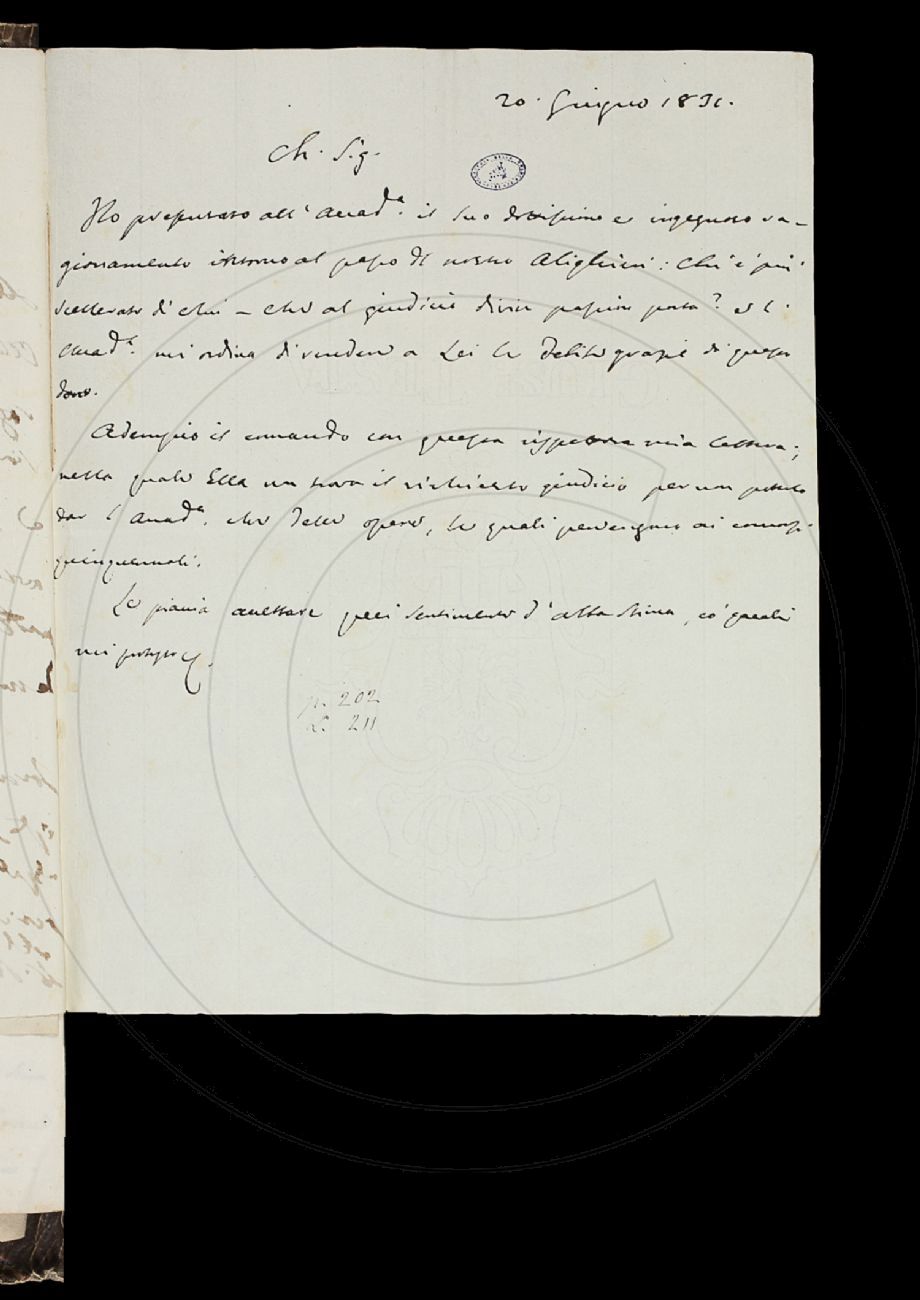 20. Giugno 1831.
Ch. Sig.
Ho presentato all'Accad.a il suo dottissimo e ingegnoso ra-
gionamento intorno al passo del nostro Alighieri: Chi è più
scellerato di chi – che al giudicio divin passion porta? e l'
Accad.a mi ordina di rendere a Lei le debite grazie di questo
dono.
Adempio il comando con questa rispettosa mia lettera;
nella quale Ella non trova il richiesto giudicio per non potere
dar l'Accad.a che delle opere, le quali pervengono ai concorsi
quinquennali.
Le piaccia accettare quei sentimenti d'alta stima, co' quali
mi protesto
p. 202
L. 211